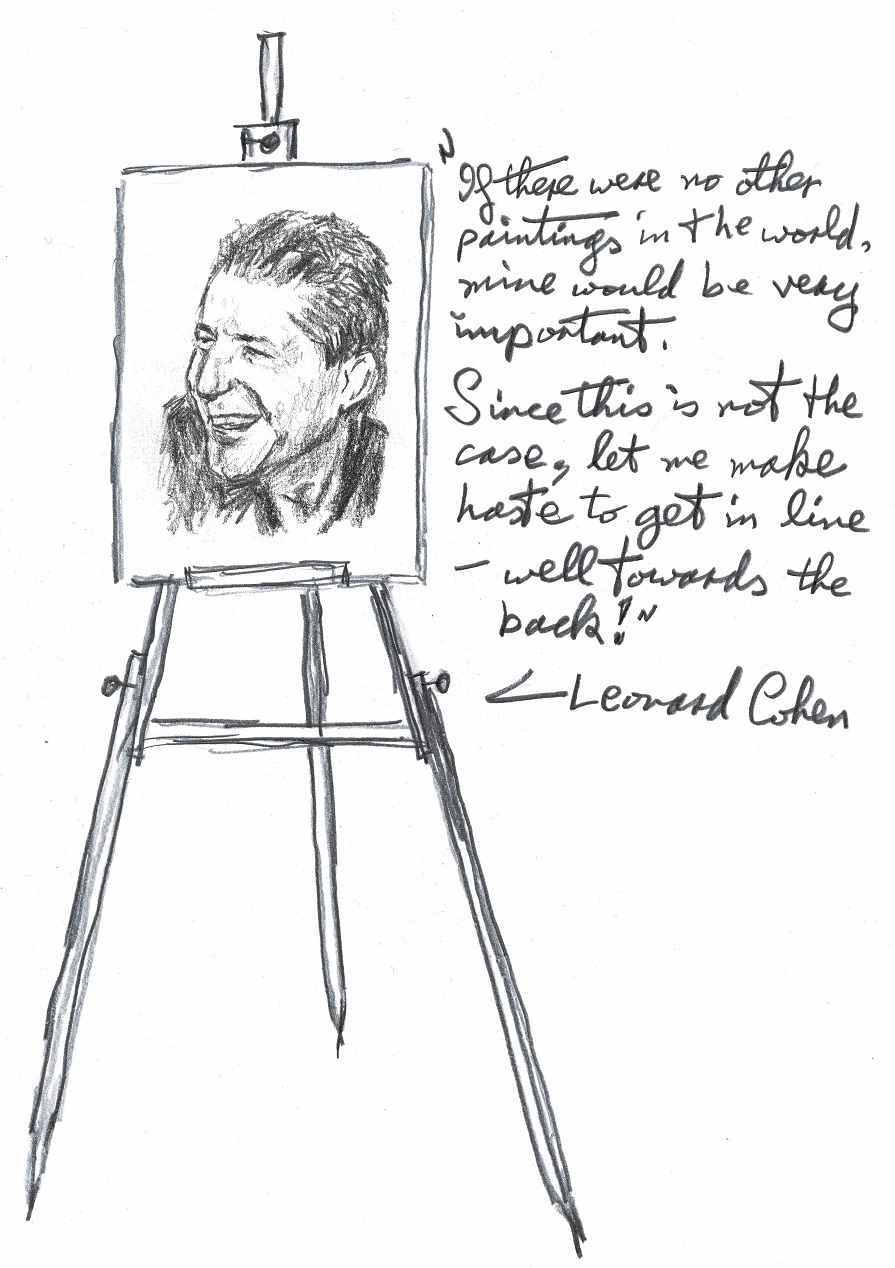 "If there were no other
paintings in the world,
mine would be very
important.
Since this is not the
case, let me make
haste to get in line
— well towards the
back!"
Leonard Cohen